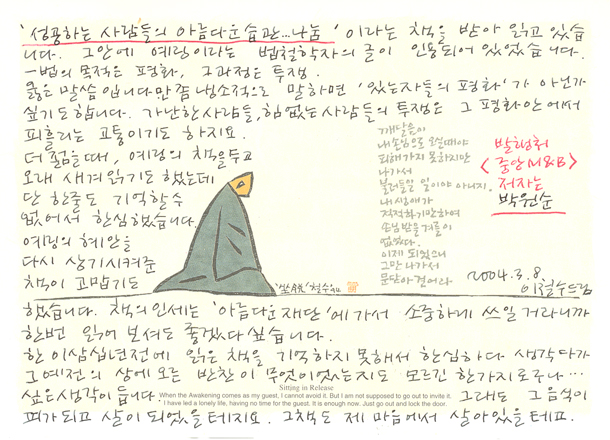 '성공하는 사람들의 아름다운 습관...나눔' 이라는 책을 받아 읽고 있습
니다. 그안에 예링이라는 법철학자의 글이 인용되어 있었습니다.
-법의 목적은 평화, 그과정은 투쟁.
옳은 말씀입니다만 좀 냉소적으로 말하면 '있는자들의 평화'가 아닌가
싶기도합니다. 가난한사람들, 힘없는 사람들의 투쟁은 그 평화안에서
피흘리는 고통이기도 하지요.
더 젊을때, 예링의 책을두고
오래 새겨읽기도 했는데
단 한줄도 기억할수
없어서 한심했습니다.
예링의 혜안을
다시 상기시켜준
책이 고맙기도
깨달음이
내손님으로 오실때야
피해가지 못하지만
나가서
불러들일 일이야 아니지.
내 생애가
적적하기만하여
손님받을 겨를이
없었다.
이제 되었으니
그만 나가서
문닫아 걸어라
발행처
<중앙M&B>
저자는
박원순
'坐脫' 철수94
2004.3.8.
이철수드림
했습니다. 책의인세는 '아름다운재단'에가서 소중하게 쓰일 거라니까
한번 읽어 보셔도 좋겠다 싶습니다.
한 이삼십년전에 읽은 책을 기억하지 못해서 한심하다 생각다가
그예전의 상에오른 반찬이 무엇이었는지도 모르긴 한가지로구나...
싶은생각이 듭니다. 그래도 그음식이
Sitting in Release
When the Awakening comes as my guest, I cannot avoid it. But I am not supposed to go out to invite it.
I have led a lonely life, having no time for the guest. It is enough now. Just go out and lock the door.
피가되고 살이 되었을테지요. 그책도 제 마음에서 살아있을테죠.